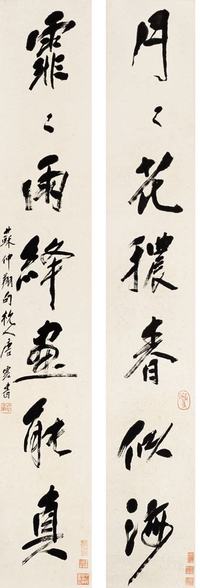 月々花穠春似海
霏々雨絳画能真
蘇仲翔句杭人唐雲書